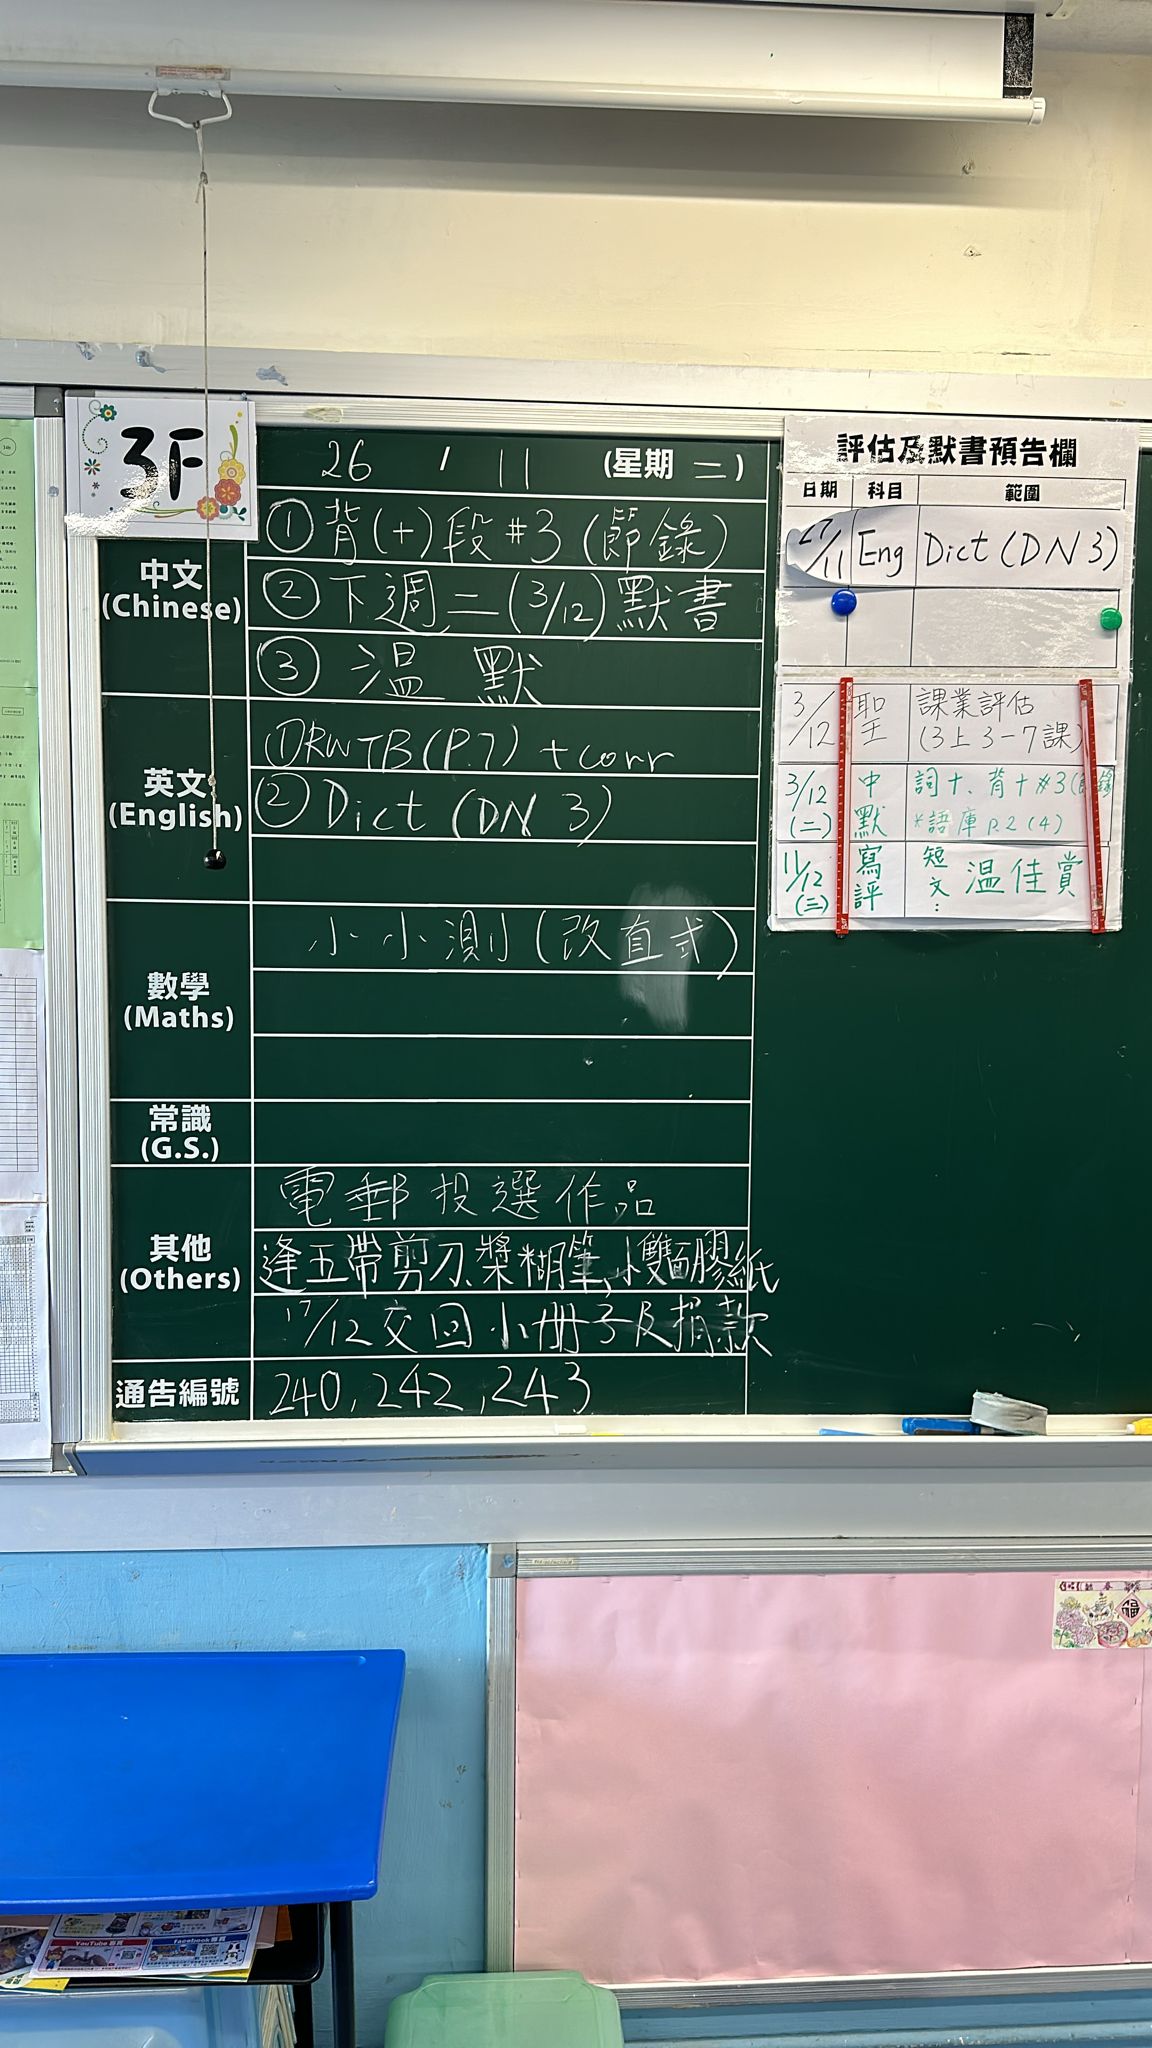 3F
26 / 11 (星期 二)
中文
(Chinese)
① 背(十)段#3(節錄)
② 下週二(3/12)默書
③ 溫 默
英文
(English)
① RWTB(P.7) + corr
② Dict (DN 3)
數學
(Maths)
小小測(改直式)
常識
(G.S.)
其他
(Others)
電郵投選作品
逢五帶剪刀、漿糊筆、小雙面膠紙
17/12交回小冊子及捐款
通告編號
240, 242, 243
評估及默書預告欄
日期 科目 範圍
27/11 Eng Dict (DN 3)
3/12 聖 課業評估
(3上3-7課)
3/12 (二) 中默 詞十、背十#3(節錄)
*語庫P.2(4)
11/12 (三) 寫評 短文: 溫佳賞
YouTube 專頁
facebook 專頁
福